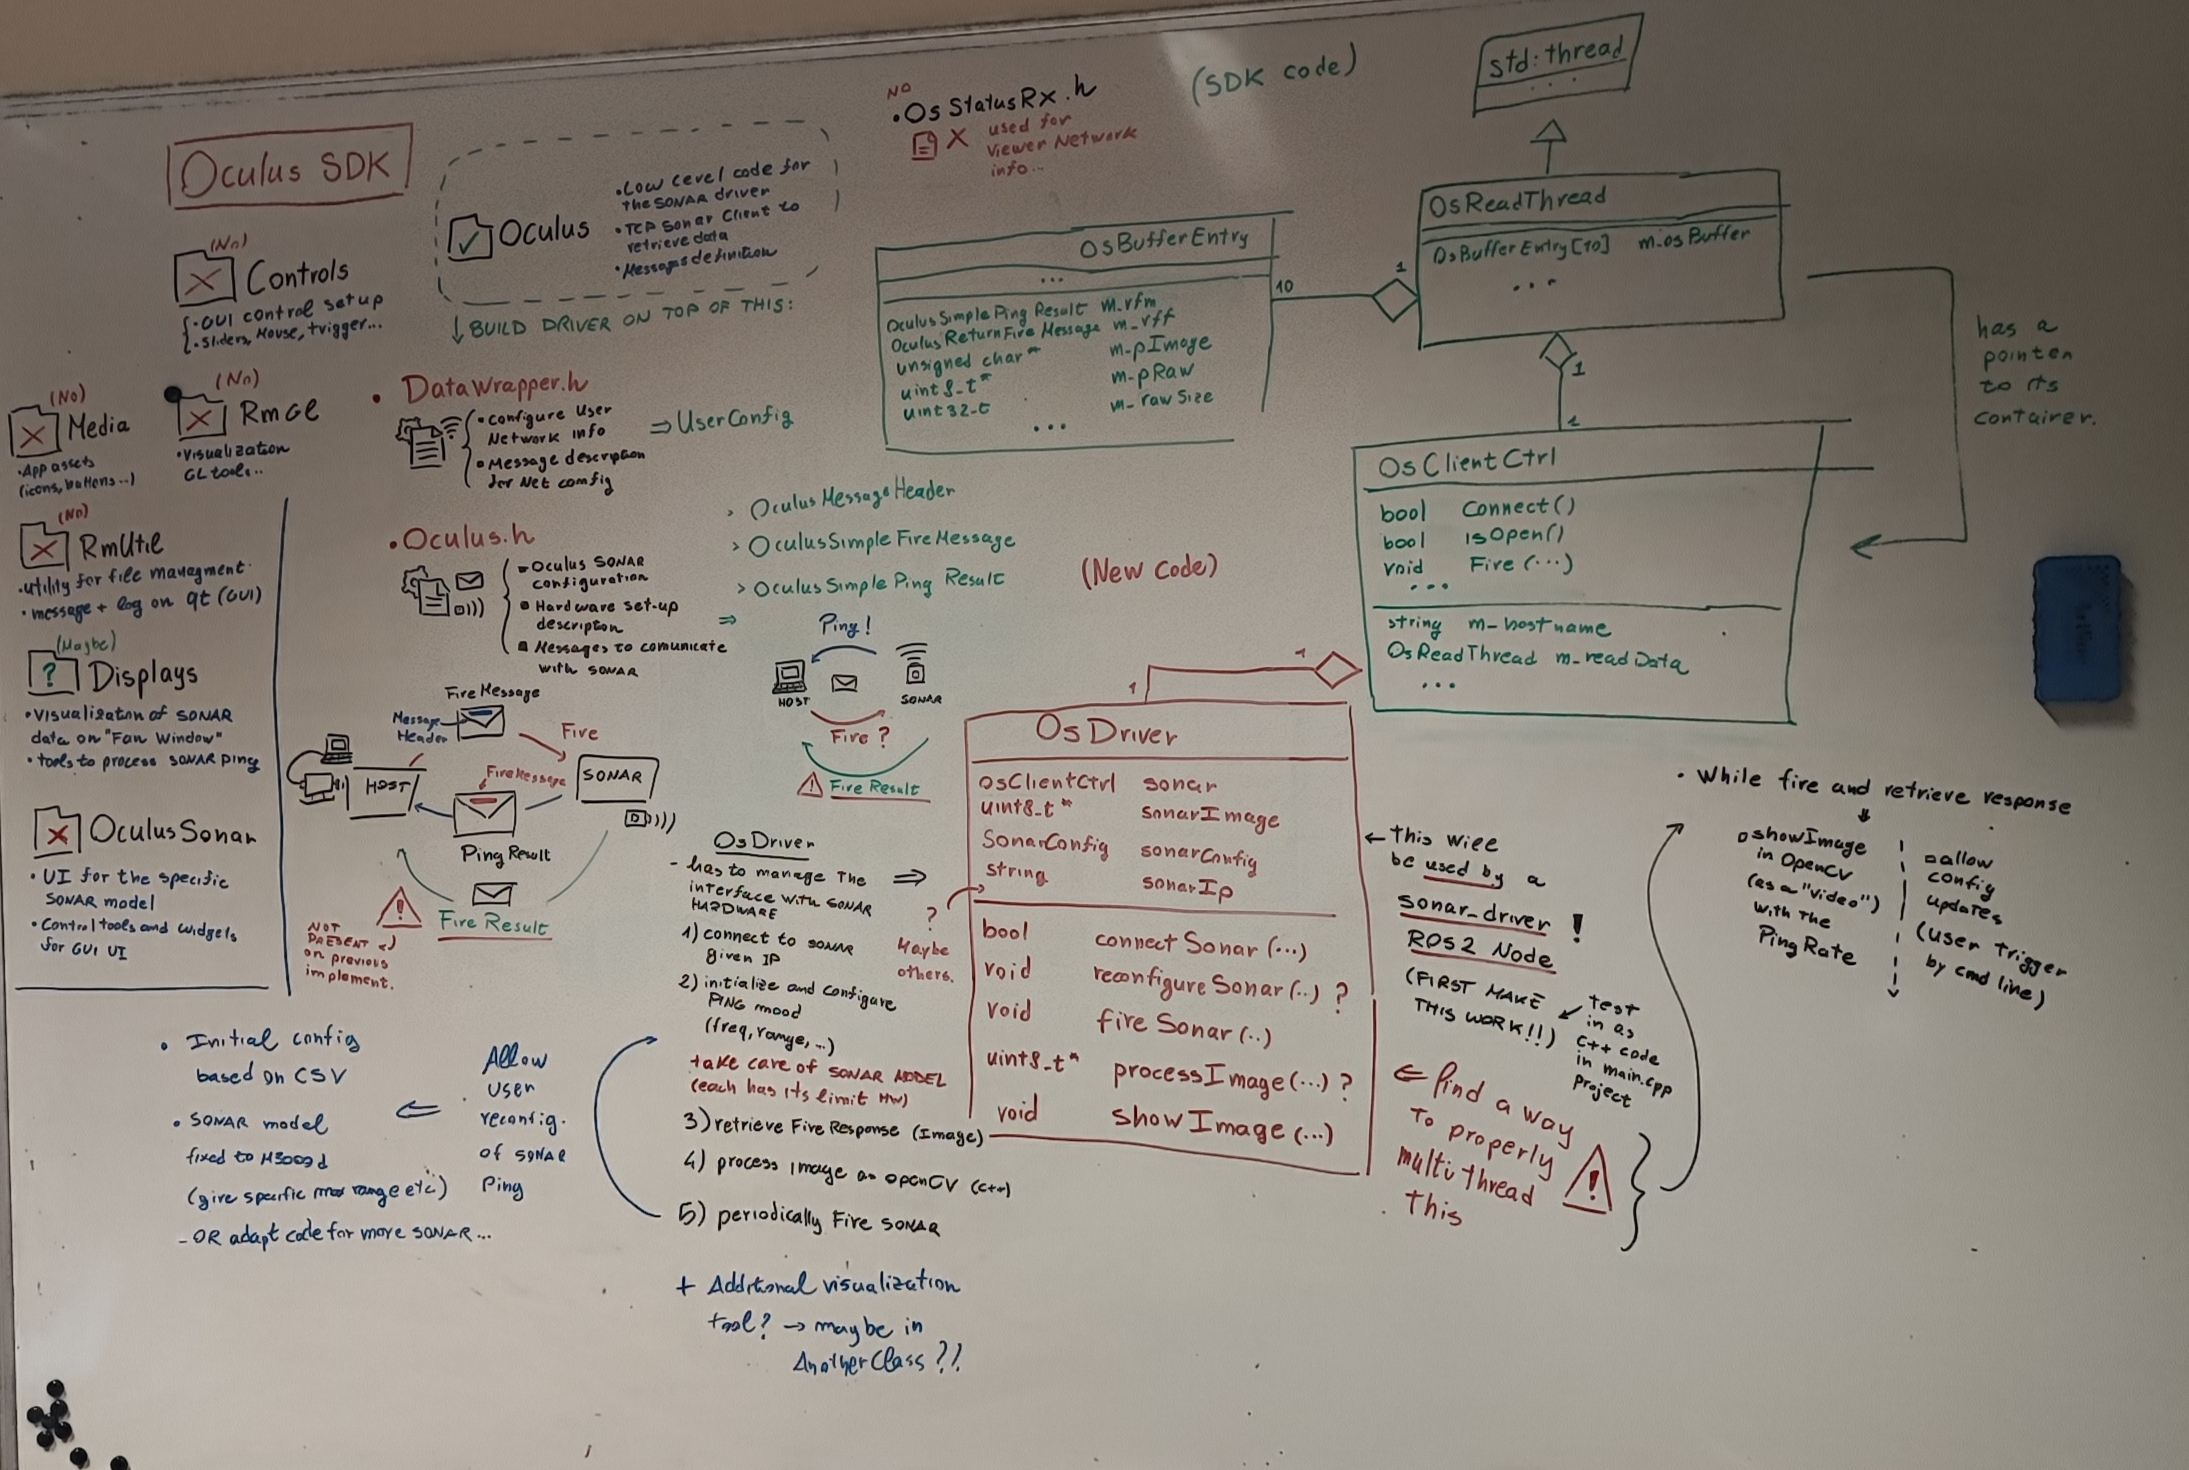 Oculus SDK
(No)
Controls
• GUI control setup
• Sliders, Mouse, trigger...
(No)
Media
• App assets
(icons, buttons...)
(No)
RmGl
• Visualization
GL tools..
(No)
RmUtil
• utility for file managment
• message + log on qt (GUI)
(Maybe)
?
Displays
• Visualization of SONAR
data on "Fan Window"
• tools to process SONAR ping
OculusSonar
• UI for the specific
SONAR model
• Control tools and widgets
for GUI UI
Oculus
• Low level code for
the SONAR driver
• TCP Sonar Client to
retrieve data
• Messages definition
↓ BUILD DRIVER ON TOP OF THIS:
• DataWrapper.h
• Configure User
Network info
• Message description
for Net config
⇒ UserConfig
• Oculus.h
• Oculus SONAR
configuration
• Hardware set-up
description
• Messages to comunicate
with SONAR
⇒
> OculusMessageHeader
> OculusSimpleFireMessage
> OculusSimple Ping Result
Ping!
HOST
SONAR
Fire?
! Fire Result
Fire Message
Message
Header
Fire
HOST
FireMessage
SONAR
Ping Result
!
Fire Result
NOT
PRESENT
on previous
implement.
NO
• OsStatusRx.h
X used for
Viewer Network
info...
(SDK code)
std::thread
...
OsReadThread
OsBufferEntry[10] m_osBuffer
...
1
10
OsBufferEntry
...
OculusSimplePing Result m_rfm
OculusReturnFireMessage m_rff
unsigned char* m-pImage
uint8_t* m-pRaw
uint32-t m_rawSize
...
1
1
has a
pointer
to its
container.
OsClientCtrl
bool Connect()
bool isOpen()
void Fire(...)
...
string m_hostname
OsReadThread m_readData
...
(New code)
1
1
OsDriver
OsClientCtrl sonar
uint8_t* sonarImage
SonarConfig sonarConfig
string sonarIp
bool connect Sonar (...)
void reconfigure Sonar (..) ?
void fire Sonar (..)
uint8_t* processImage (...) ?
void show Image (...)
?
Maybe
others.
OsDriver
- has to manage the
interface with SONAR
HARDWARE
⇒
1) connect to SONAR
given IP
2) initialize and configure
PING mood
(freq, range, ...)
take care of SONAR MODEL
(each has its limit HW)
3) retrieve Fire Response (Image)
4) process image on openCV (C++)
5) periodically Fire SONAR
+ Additional visualization
tool? → maybe in
Another Class ?!
• Initial config
based on CSV
• SONAR model
fixed to M3000d
(give specific max range etc)
- OR adapt code for more SONAR...
⇐
Allow
user
reconfig.
of SONAR
Ping
← This will
be used by a
sonar_driver !
ROS2 Node
(FIRST MAKE
THIS WORK!!)
test
in as
C++ code
in main.cpp
project
⇐ find a way
To properly
multi thread
this
!
• While fire and retrieve response
showImage
in OpenCV
(as a "video")
with the
Ping Rate
allow
config
updates
(user trigger
by cmd line)